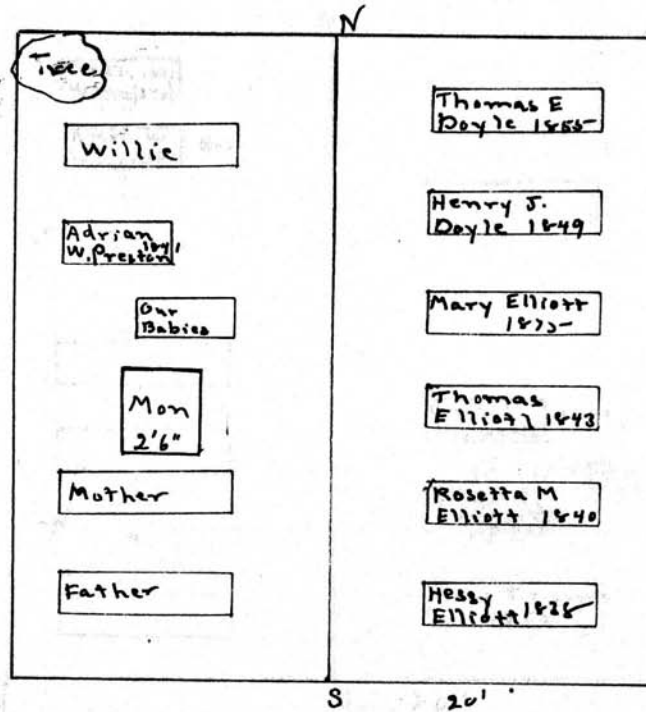 N
Tree
Willie
Adrian
W. Preston 1841
Our
Babies
Mon
2'6"
Mother
Father
Thomas E
Doyle 1855
Henry J.
Doyle 1849
Mary Elliott
Thomas
Elliott 1843
Rosetta M
Elliott 1840
Hessy
Elliott
S
20'